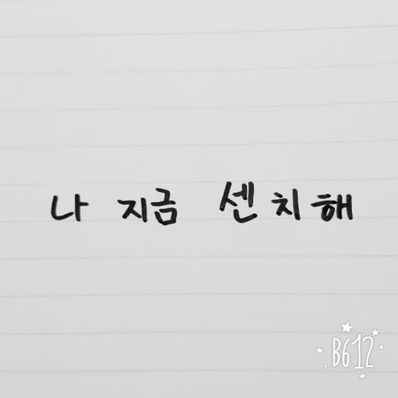 나 지금 센치해
B612